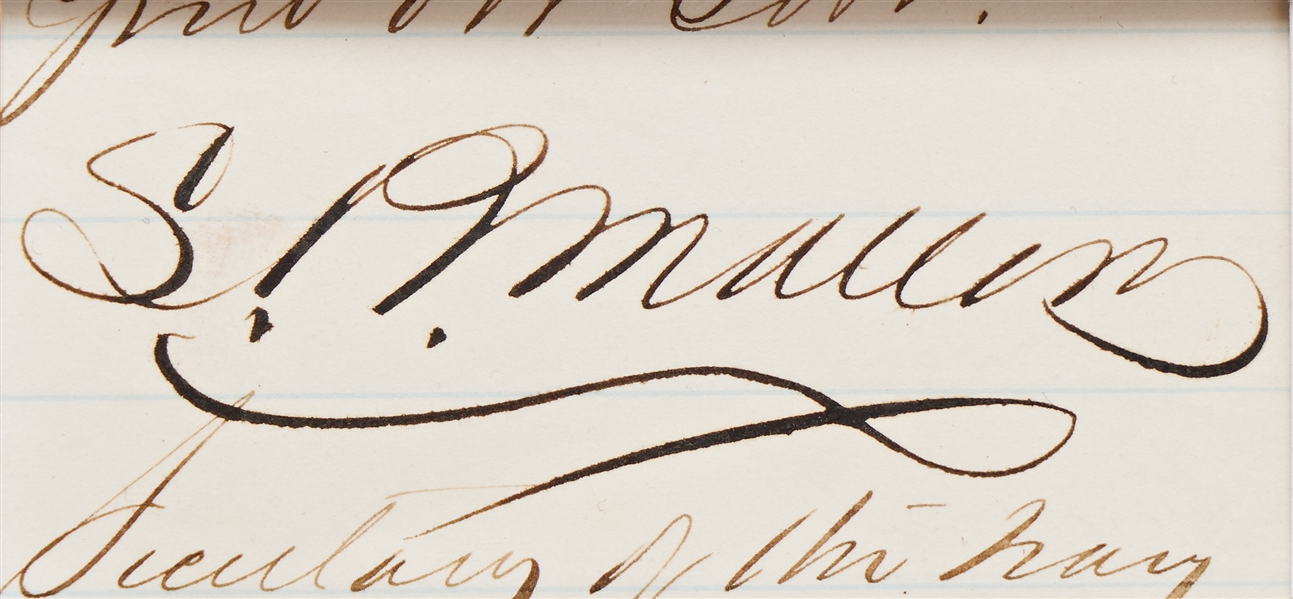 S. R. Mallory
Secretary of the Navy